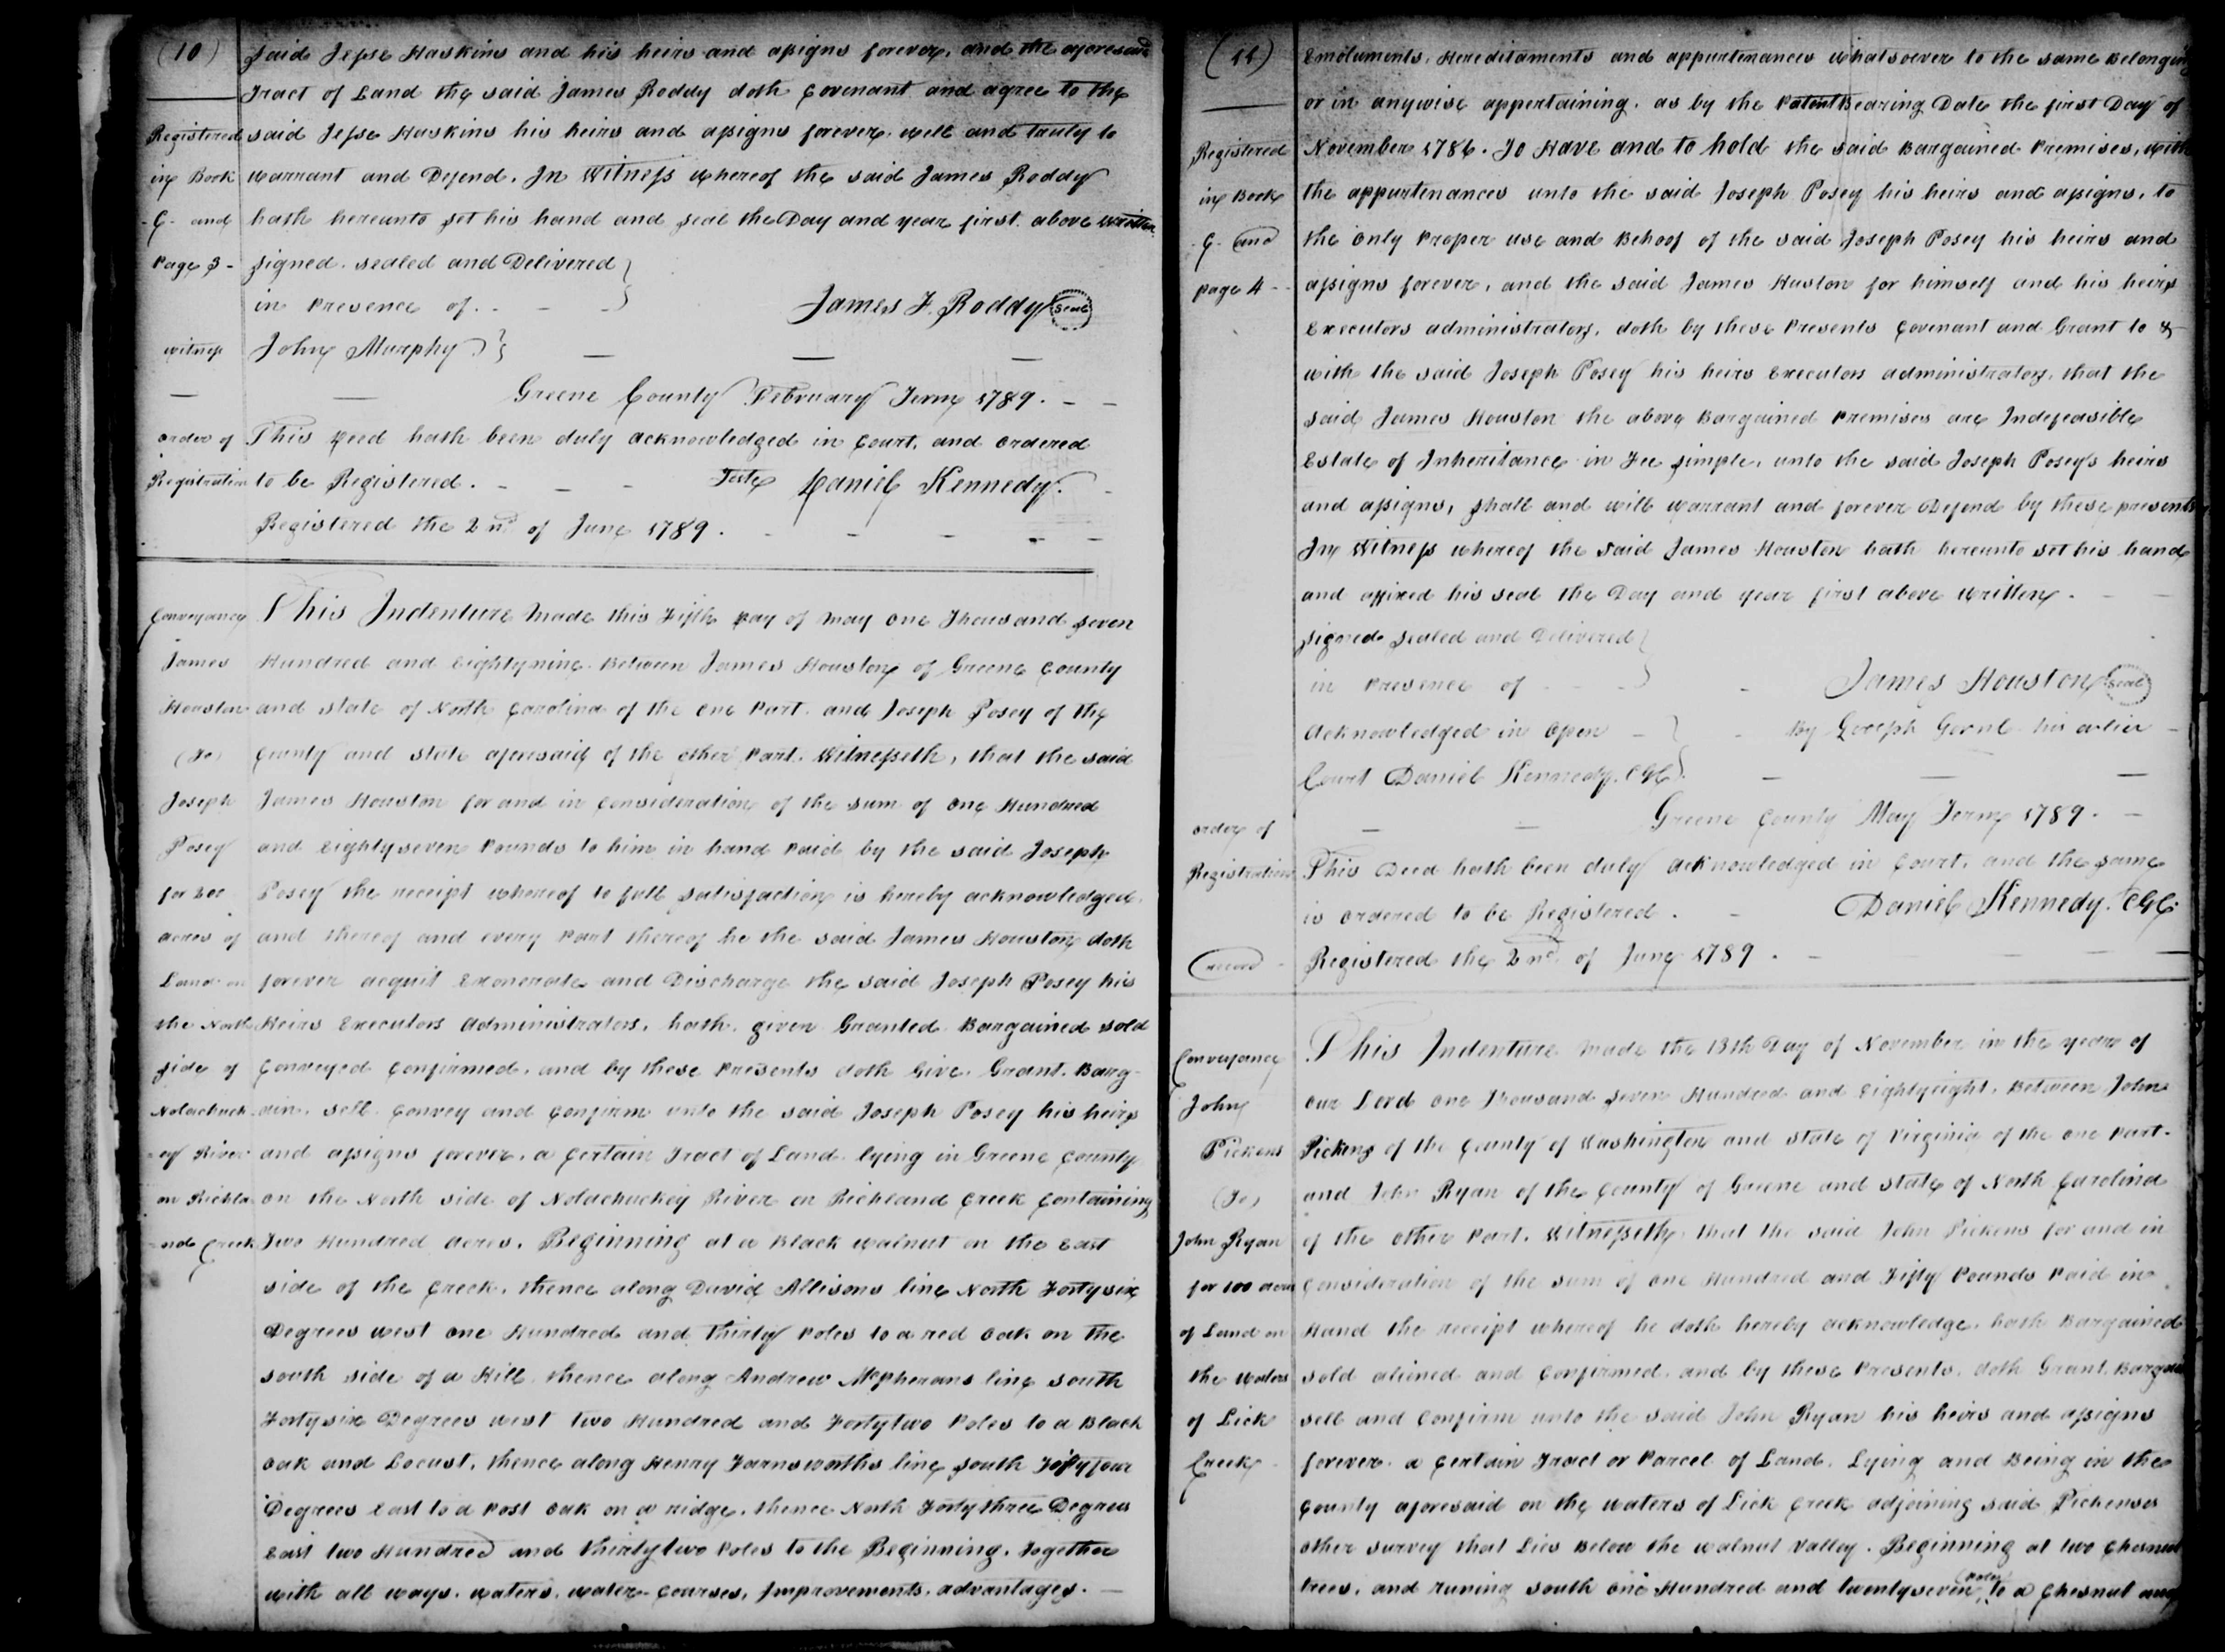 (10)
said Jesse Haskins and his heirs and assigns forever, and the aforesaid
Tract of Land the said James Roddy doth Covenant and agree to the
said Jesse Haskins his heirs and assigns forever. well and truly to
warrant and Defend. In Witness whereof the said James Roddy
hath hereunto set his hand and seal the Day and year first above written
signed. sealed and Delivered
in presence of. - - -
James F. Roddy Seal
John Murphy
Registered
in Book
C. and
Page 3 -
witness
Greene County February Term 1789. - -
order of
Registration
This Deed hath been duly acknowledged in Court, and ordered
to be Registered. - - - Teste Daniel Kennedy.
Registered the 2nd of June 1789.
Conveyance
James
Houston
(To)
Joseph
Posey
for 200
acres of
Land on
the North
side of
Nolachuck
-ey River
on Richla
-nd Creek
This Indenture made this Fifth Day of May one Thousand seven
Hundred and Eightynine. Between James Houston of Greene County
and state of North Carolina of the one Part. and Joseph Posey of the
County and state aforesaid of the other Part. Witnesseth, that the said
James Houston for and in Consideration of the sum of one Hundred
and Eightyseven Pounds to him in hand Paid by the said Joseph
Posey the receipt whereof to full satisfaction is hereby acknowledged.
and thereof and every Part thereof he the said James Houston doth
forever acquit Exonerate and Discharge the said Joseph Posey his
Heirs Executors administrators, hath given Granted Bargained sold
Conveyed Confirmed, and by these Presents doth Give. Grant. Barg-
ain. sell. Convey and Confirm unto the said Joseph Posey his heirs
and assigns forever, a Certain Tract of Land lying in Greene County
on the North side of Nolachuckey River on Richland Creek Containing
Two Hundred acres. Beginning at a Black walnut on the East
side of the Creek, thence along David Allisons line North Fortysix
Degrees west one Hundred and thirty Poles to a red oak on the
south side of a Hill. thence along Andrew McPherans line south
Fortysix Degrees west two Hundred and Fortytwo Poles to a Black
oak and Locust, thence along Henry Farnsworths line south Fiftyfour
Degrees East to a Post oak on a ridge. thence North Fortythree Degrees
East two Hundred and thirtytwo Poles to the Beginning. Together
with all ways. waters. water-courses, Improvements. advantages. -
(11)
Emoluments. Hereditaments and appurtenances whatsoever to the same Belonging
or in anywise appertaining. as by the Patent Bearing Date the first Day of
November 1786. To Have and to hold the said Bargained Premises, with
the appurtenances unto the said Joseph Posey his heirs and assigns, to
the only Proper use and Behoof of the said Joseph Posey his heirs and
assigns forever, and the said James Huston for himself and his heirs
Executors administrators, doth by these Presents Covenant and Grant to &
with the said Joseph Posey his heirs Executors administrators, that the
said James Houston the above Bargained Premises are Indefeasible
Estate of Inheritance in Fee simple, unto the said Joseph Poseys heirs
and assigns, shall and will warrant and forever Defend by these presents
In Witness whereof the said James Houston hath hereunto set his hand
and affixed his seal the Day and year first above written. - -
signed sealed and Delivered
in Presence of - - -
James Houston Seal
Acknowledged in open -
By Joseph his
Court Daniel Kennedy. CGC
Registered
in Book
C. and
page 4 - -
Greene County May Term 1789. -
order of
Registration
This Deed hath been duly acknowledged in Court, and the same
is ordered to be Registered. - Daniel Kennedy. CGC.
Registered the 2nd of June 1789. -
record
Conveyance
John
Pickens
(To)
John Ryan
for 100 acres
of Land on
the waters
of Lick
Creek
This Indenture made the 13th Day of November in the year of
our Lord one Thousand seven Hundred and Eightyeight. Between John
Pickens of the County of Washington and state of Virginia of the one part.
and John Ryan of the County of Greene and state of North Carolina
of the other Part. Witnesseth that the said John Pickens for and in
Consideration of the sum of one Hundred and Fifty Pounds Paid in
Hand the receipt whereof he doth hereby acknowledge. hath Bargained
sold aliened and Confirmed. and by these Presents. doth Grant. Bargain
sell and Confirm unto the said John Ryan his heirs and assigns
forever. a Certain Tract or Parcel of Land. Lying and Being in the
County aforesaid on the waters of Lick Creek adjoining said Pickenses
other survey that Lies Below the walnut Valley. Beginning at two Chesnut
trees, and runing south one Hundred and twentyseven poles to a Chesnut and